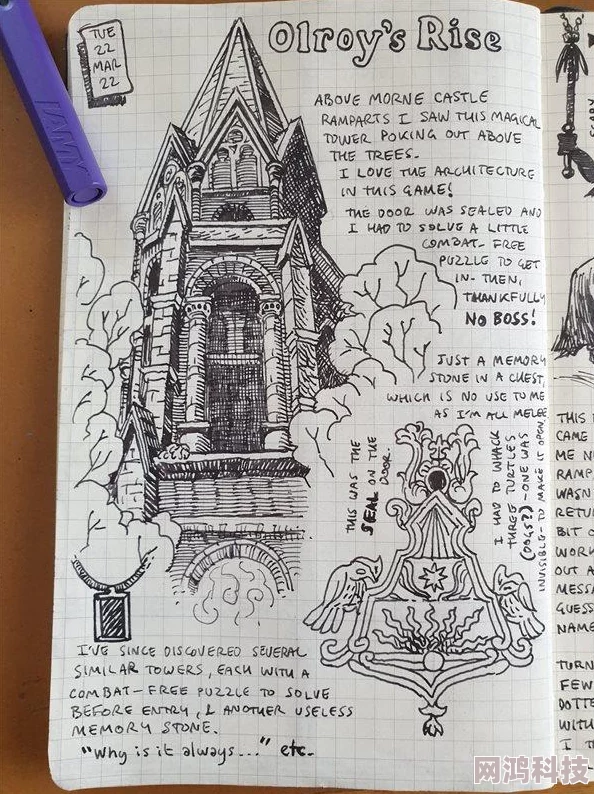 TUE
22
MAR
22
Olroy's Rise
ABOVE MORNE CASTLE
RAMPARTS I SAW THIS MAGICAL
TOWER POKING OUT ABOVE
THE TREES.
I LOVE THE ARCHITECTURE
IN THIS GAME!
THE DOOR WAS SEALED AND
I HAD TO SOLVE A LITTLE
COMBAT-FREE
PUZZLE TO GET
IN- THEN,
THANKFULLY
NO BOSS!
JUST A MEMORY
STONE IN A CHEST,
WHICH IS NO USE TO ME
AS I'M ALL MELEE.
THIS WAS THE
SEAL ON THE
DOOR.
I HAD TO WHACK
THREE TURTLES
(DOGS?)-ONE WAS
INVISIBLE-TO MAKE IT OPEN.
I'VE SINCE DISCOVERED SEVERAL
SIMILAR TOWERS, EACH WITH A
COMBAT-FREE PUZZLE TO SOLVE
BEFORE ENTRY, & ANOTHER USELESS
MEMORY STONE.
"Why is it always..." etc.
LAMY
THIS
CAME
ME
RAMP
WASN
RETU
BIT
WORK
OUT A
MESSA
GUESS
NAME
TURN
FEW
DOTTE
WITH
I T
网鸿科技